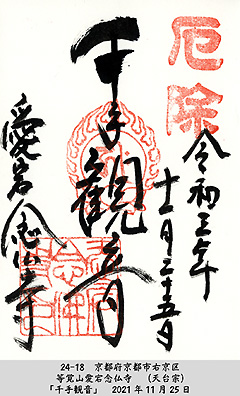 厄除
令和三年
十一月二十五日
千手観音
愛宕念仏寺
24-18　京都府京都市右京区
等覚山愛宕念仏寺　（天台宗）
「千手観音」　2021年11月25日